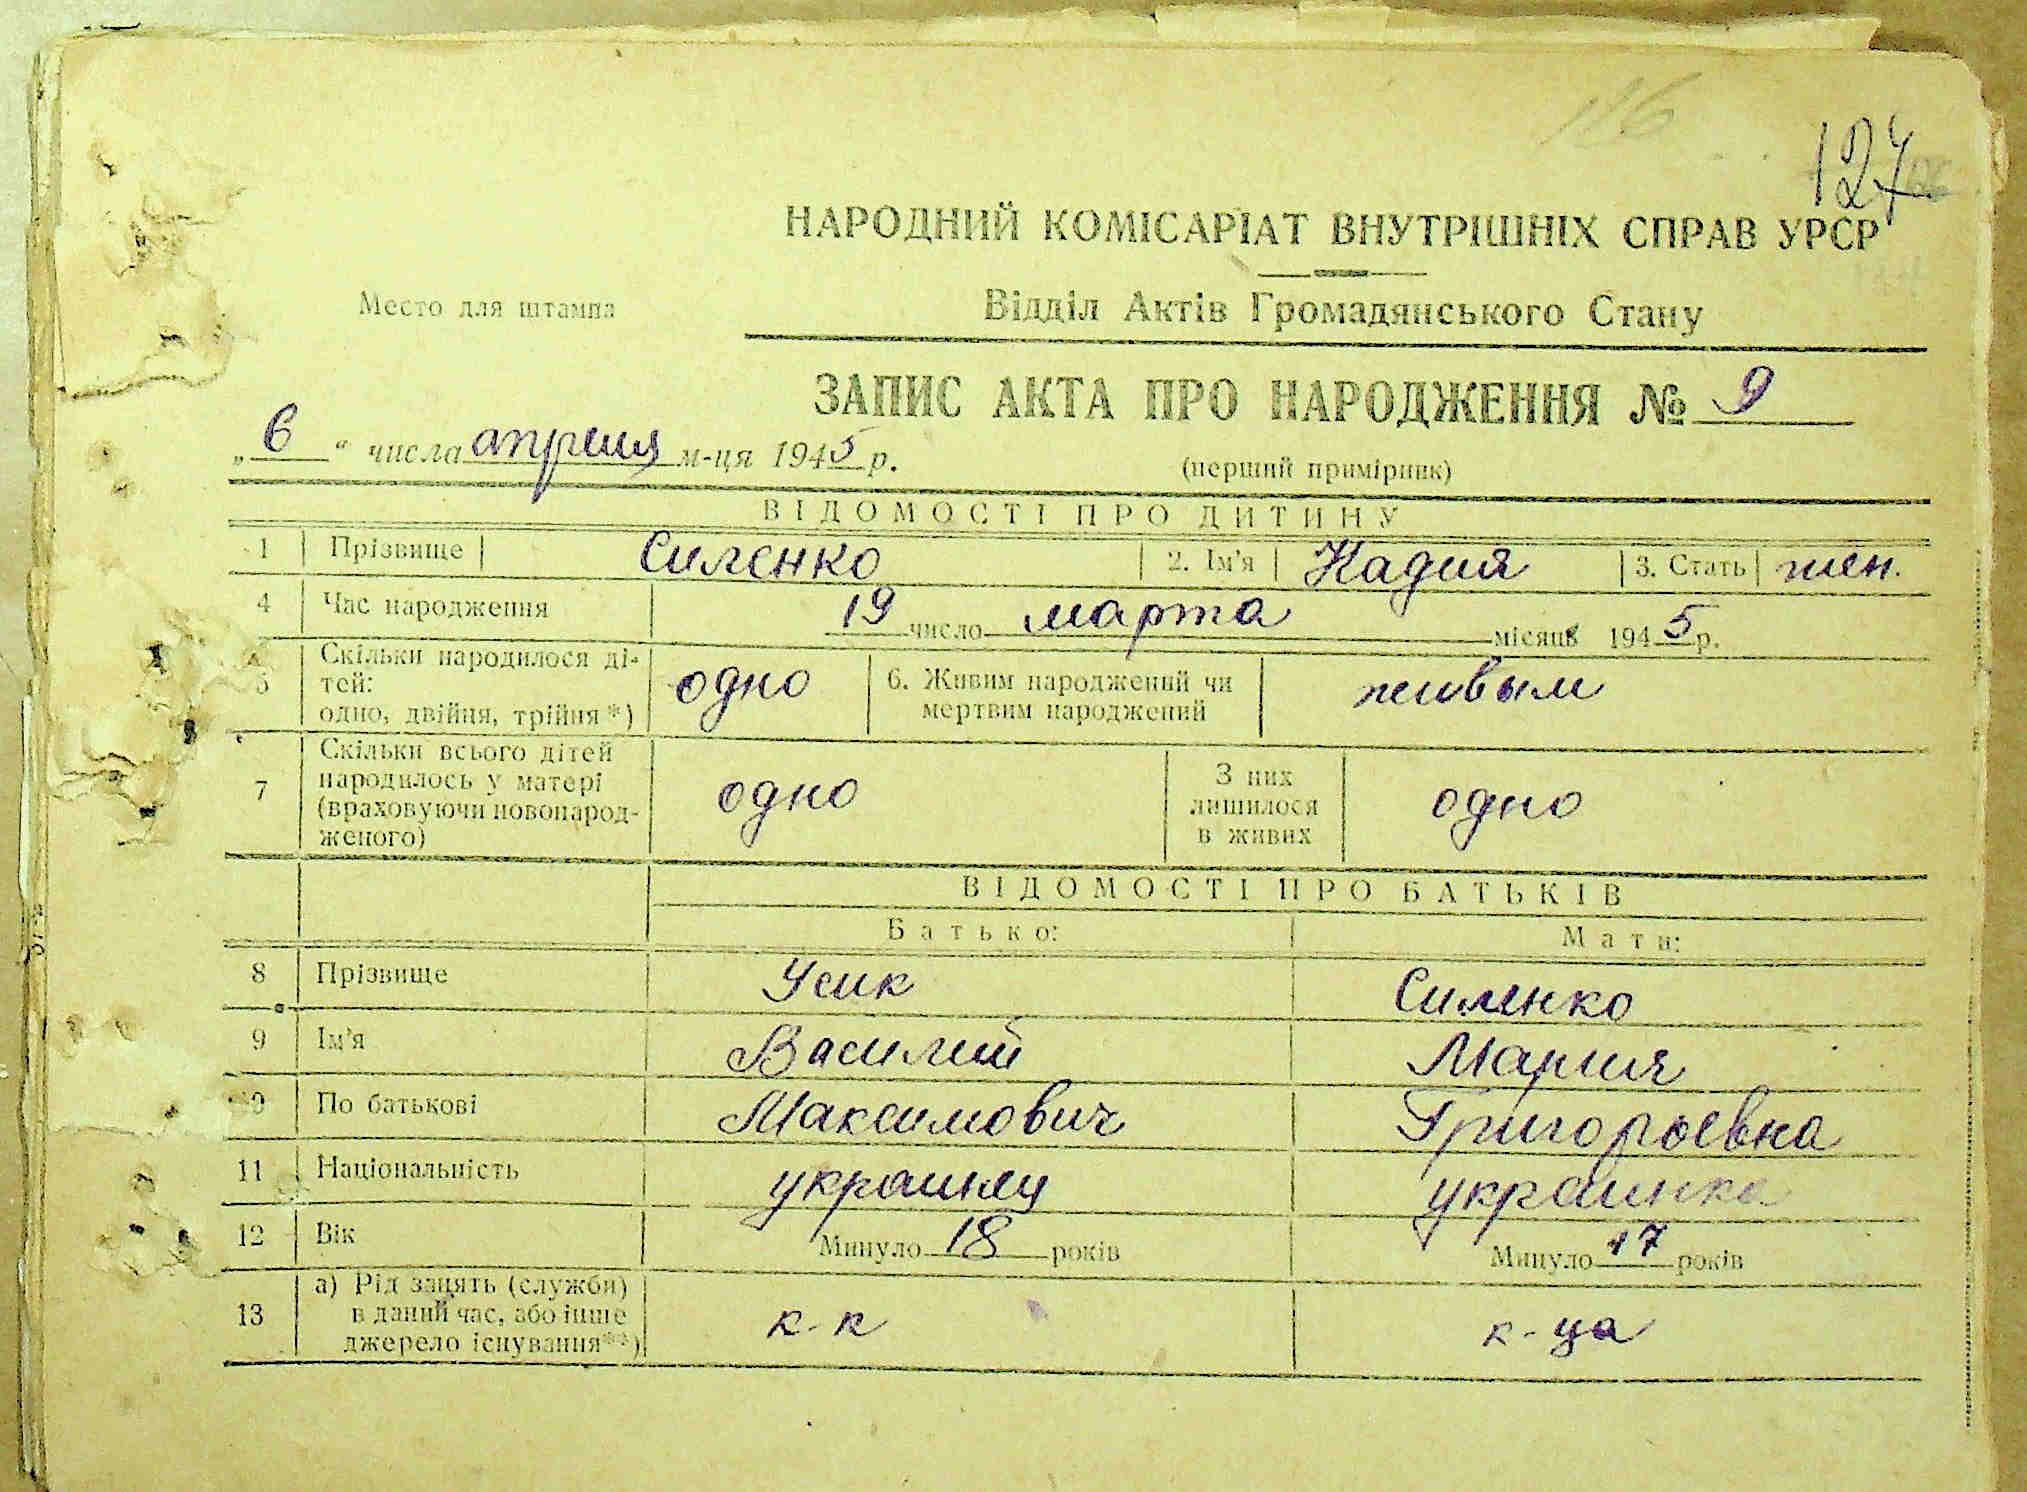 116
127
НАРОДНИЙ КОМІСАРІАТ ВНУТРІШНІХ СПРАВ УРСР
Место для штампа
Відділ Актів Громадянського Стану
ЗАПИС АКТА ПРО НАРОДЖЕННЯ № 9
„6“ числа апреля м-ця 1945 р.
(перший примірник)
ВІДОМОСТІ ПРО ДИТИНУ
1 Прізвище Силенко 2. Ім'я Надия 3. Стать жен.
4 Час народження 19 число марта місяця 1945 р.
5 Скільки народилося ді-
тей:
одно, двійня, трійня*)
одно
6. Живим народжений чи
мертвим народжений
живым
7 Скільки всього дітей
народилось у матері
(враховуючи новонарод-
женого)
одно
З них
лишилося
в живих
одно
ВІДОМОСТІ ПРО БАТЬКІВ
Батько: Мати:
8 Прізвище Усик Силенко
9 Ім'я Василий Мария
10 По батькові Максимович Григорьевна
11 Національність украинец украинка
12 Вік Минуло 18 років Минуло 17 років
13 а) Рід занять (служби)
в даний час, або інше
джерело існування**)
к-к к-ца